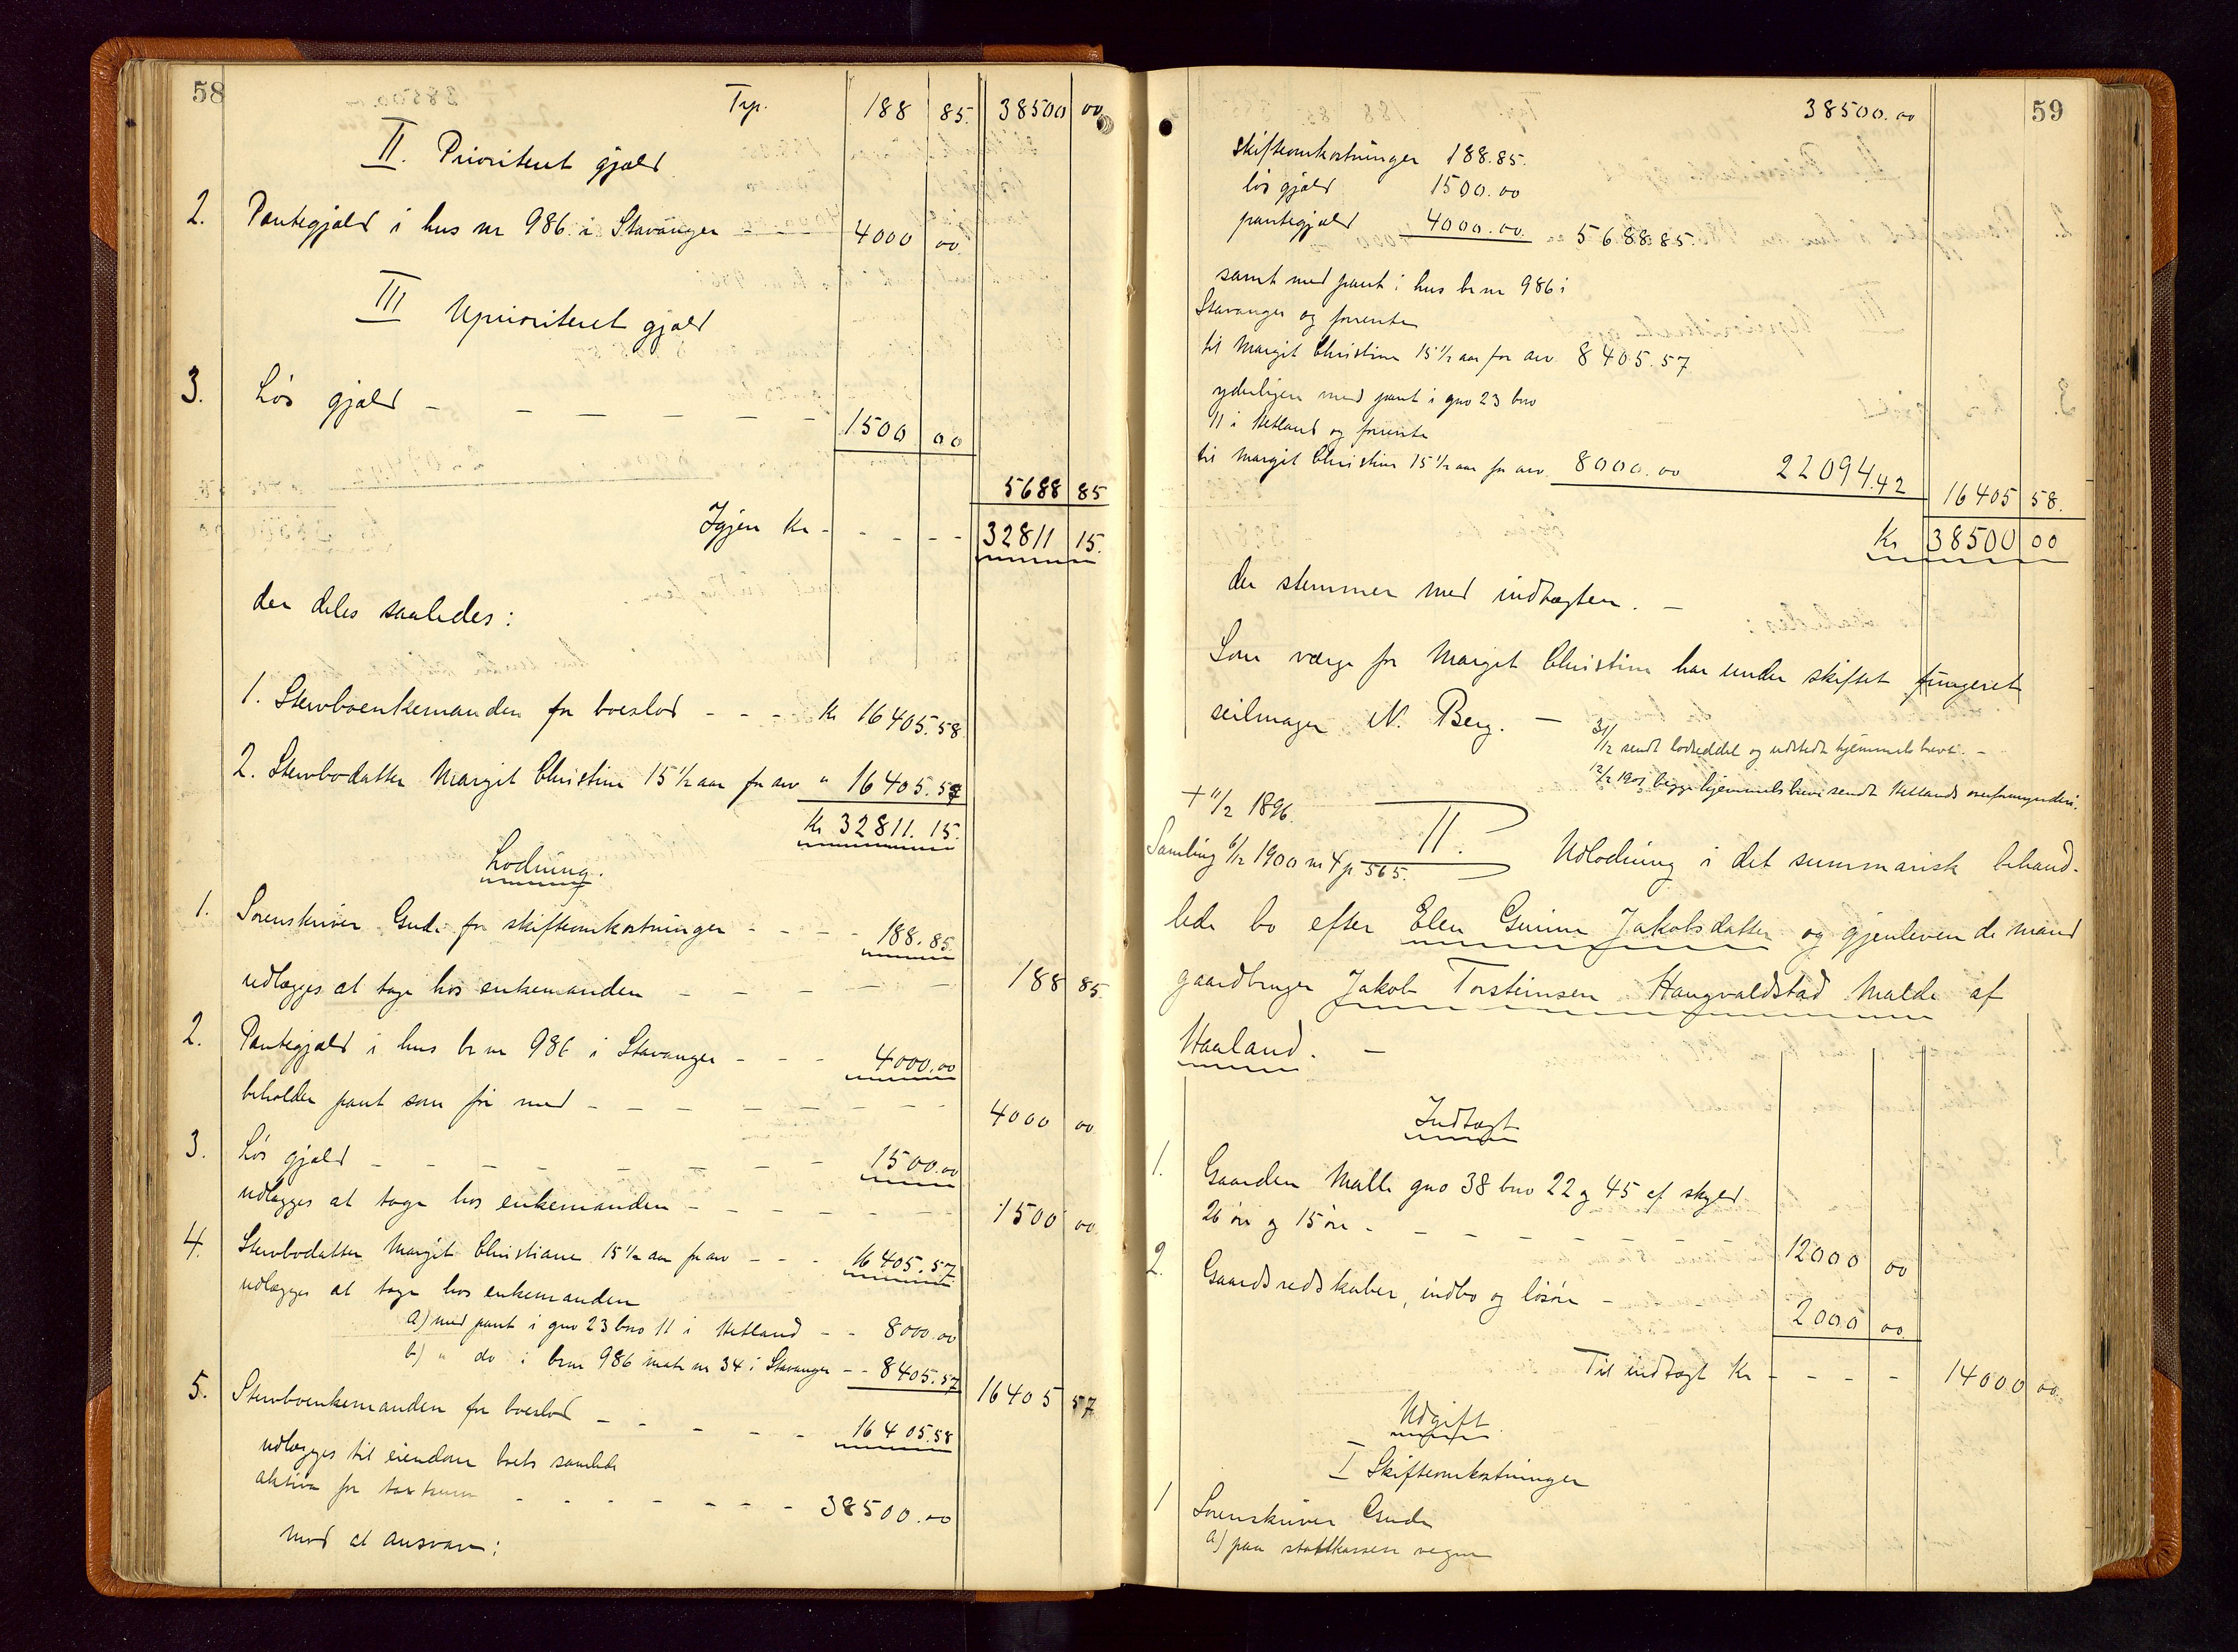 58
Trp. 188 85. 38500 00
II. Prioritert gjæld
2. Pantegjæld i hus nr 986 i Stavanger - - 4000 00.
III Uprioritert gjæld
3. Løs gjæld - - - - - - - 1500 00
5688 85
Igjen kr - - - - - 32811 15.
der deles saaledes:
1. Stervboenkemanden for boeslod - - - kr 16405.58
2. Stervbodatter Margit Christine 15 1/2 aar for arv " 16405.57
Kr 32811.15.
Lodning.
1. Sorenskriver Gude for skifteomkostninger - - - - 188.85.
udlægges at tage hos enkemanden - - - - - - 188 85.
2. Pantegjæld i hus br nr 986 i Stavanger - - - 4000.00
beholder pant som før med - - - - - - - - 4000 00
3. Løs gjæld - - - - - - - - 1500.00
udlægges at tage hos enkemanden - - - - - - 1500 00.
4. Stervbodatter Margit Christiane 15 1/2 aar for arv - - - 16405.57
udlægges at tage hos enkemanden
a) med pant i gno 23 bno 11 i Hetland - - 8000.00
b) " do i brnr 986 matr nr 34 i Stavanger - - 8405.57
16405 57.
5. Stervboenkemanden for boeslod - - - - - 16405.58
udlægges til eiendom boets samlede
aktiva for taxtsum - - - - - - - 38500.00
mod at ansvare:
59
38500.00
skifteomkostninger 188.85.
løs gjæld 1500.00
pantegjæld 4000.00. 5688.85.
samt med pant i hus br nr 986 i
Stavanger og forrente
til Margit Christine 15 1/2 aar for arv 8405.57
yderligere med pant i gno 23 bno
11 i Hetland og forrente
til Margit Christine 15 1/2 aar for arv. 8000.00 22094.42
16405 58.
Kr 38500 00
der stemmer med indtægten. -
Som værge for Margit Christine har under skiftet fungeret
seilmager N. Berg. -
31/12 sendt lodseddel og udstedt hjemmelsbreve. -
12/2 1901 begge hjemmelsbreve sendt Hetlands overformynderi.
+ 11/2 1896.
Samling 6/12 1900 nr 4 p 565.
II. Udlodning i det summarisk behand-
lede bo efter Elen Gurine Jakobsdatter og gjenlevende mand
gaardbruger Jakob Torsteinsen Haugvaldstad Malde af
Haaland. -
Indtægt
1. Gaarden Malle gno 38 bno 22 og 45 af skyld
26 øre og 15 øre - - - - - - - - 12000 00
2. Gaardsredskaber, indbo og løsøre - 2000 00
Til indtægt Kr - - - - 14000 00.
Udgift
I Skifteomkostninger
1 Sorenskriver Gude
a) paa statskassen vegne